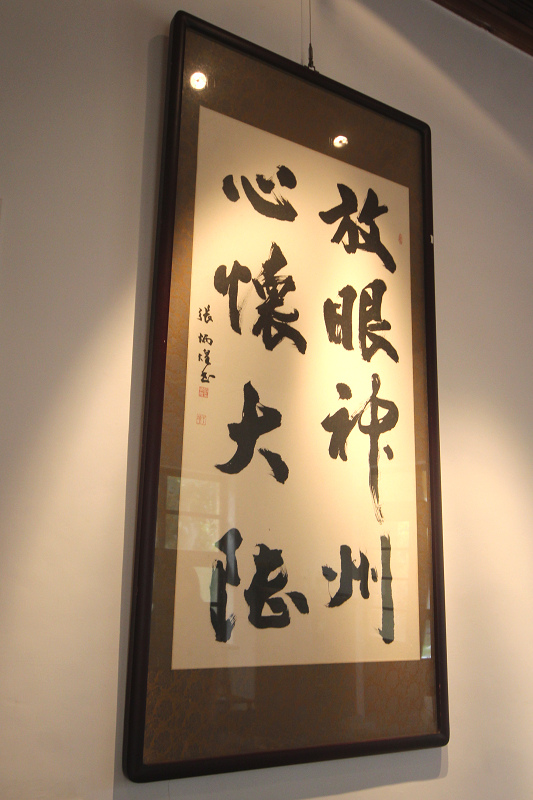 放眼神州
心懷大陸
張炳煌書